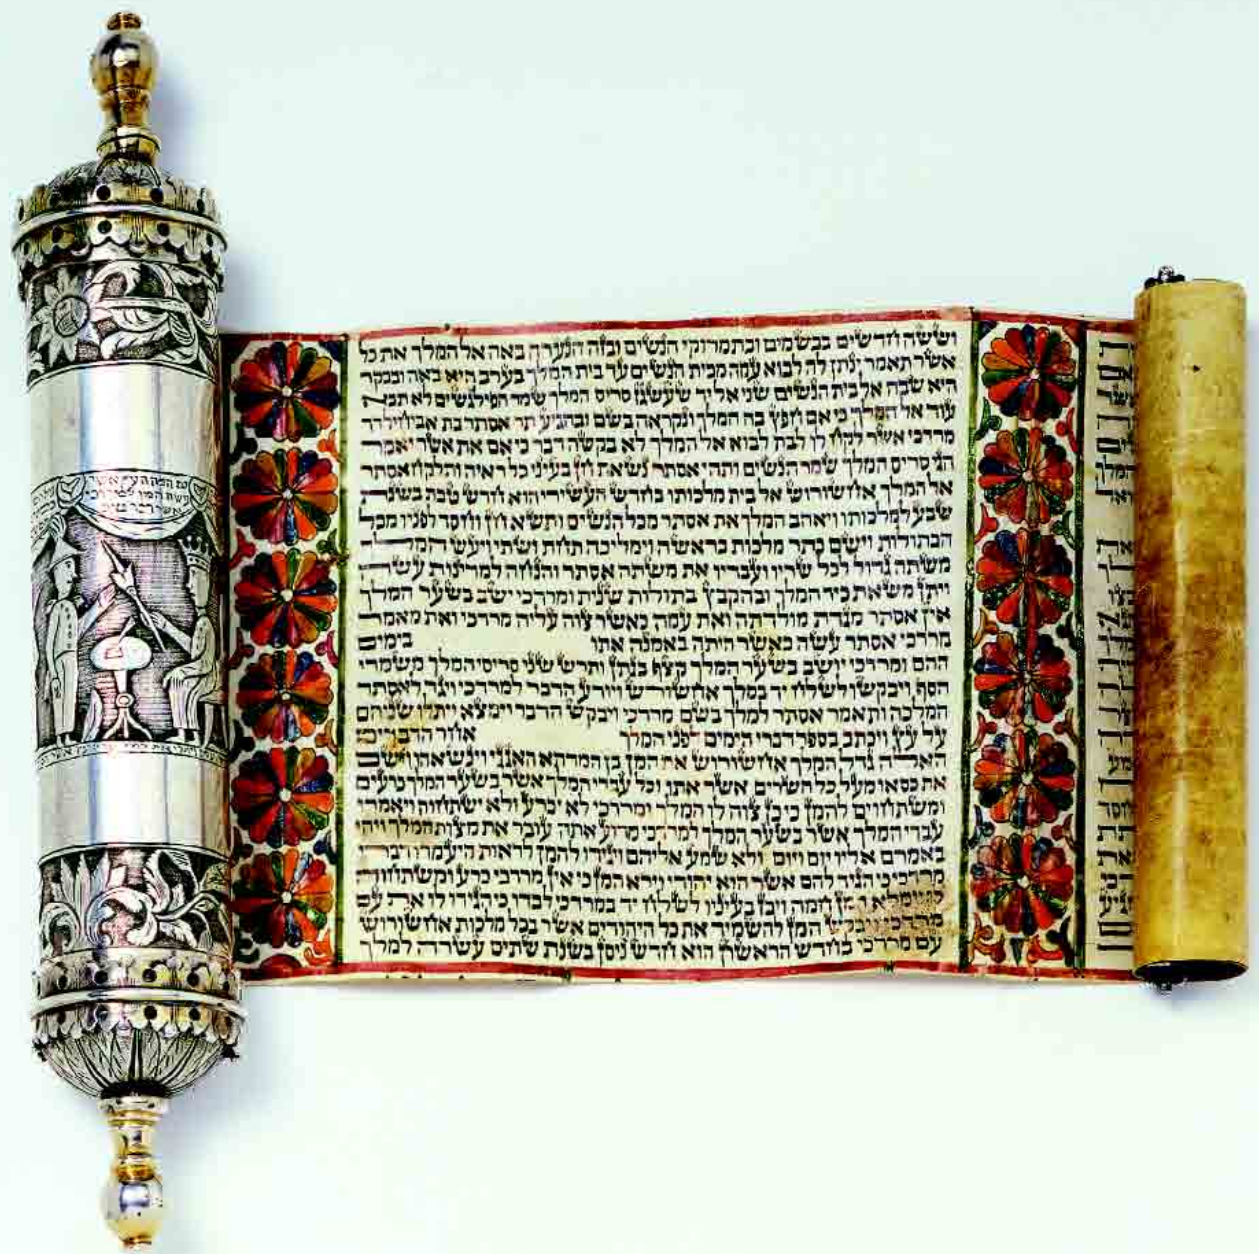 וששה חדשים בבשמים ובתמרוקי הנשים ובזה הנערה באה אל המלך את כל
אשר תאמר ינתן לה לבוא עמה מבית הנשים עד בית המלך בערב היא באה ובבקר
היא שבה אל בית הנשים שני אל יד שעשגז סריס המלך שמר הפילגשים לא תבוא
עוד אל המלך כי אם חפץ בה המלך ונקראה בשם ובהגיע תר אסתר בת אביחיל דד
מרדכי אשר לקח לו לבת לבוא אל המלך לא בקשה דבר כי אם את אשר יאמר
הגי סריס המלך שמר הנשים ותהי אסתר נשאת חן בעיני כל ראיה ותלקח אסתר
אל המלך אחשורוש אל בית מלכותו בחדש העשירי הוא חדש טבת בשנת
שבע למלכותו ויאהב המלך את אסתר מכל הנשים ותשא חן וחסד לפניו מכל
הבתולות וישם כתר מלכות בראשה וימליכה תחת ושתי ויעש המלך
משתה גדול לכל שריו ועבדיו את משתה אסתר והנחה למדינות עשה
ויתן משאת כיד המלך ובהקבץ בתולות שנית ומרדכי ישב בשער המלך
אין אסתר מגדת מולדתה ואת עמה כאשר צוה עליה מרדכי ואת מאמר
מרדכי אסתר עשה כאשר היתה באמנה אתו בימים
ההם ומרדכי יושב בשער המלך קצף בגתן ותרש שני סריסי המלך משמרי
הסף ויבקשו לשלח יד במלך אחשורש ויודע הדבר למרדכי ויגד לאסתר
המלכה ותאמר אסתר למלך בשם מרדכי ויבקש הדבר וימצא ויתלו שניהם
על עץ ויכתב בספר דברי הימים לפני המלך אחר הדברים
האלה גדל המלך אחשורוש את המן בן המדתא האגגי וינשאהו וישם
את כסאו מעל כל השרים אשר אתו וכל עבדי המלך אשר בשער המלך כרעים
ומשתחוים להמן כי כן צוה לו המלך ומרדכי לא יכרע ולא ישתחוה ויאמרו
עבדי המלך אשר בשער המלך למרדכי מדוע אתה עובר את מצות המלך ויהי
באמרם אליו יום ויום ולא שמע אליהם ויגידו להמן לראות היעמדו דברי
מרדכי כי הגיד להם אשר הוא יהודי וירא המן כי אין מרדכי כרע ומשתחוה
לו וימלא המן חמה ויבז בעיניו לשלח יד במרדכי לבדו כי הגידו לו את עם
מרדכי ויבקש המן להשמיד את כל היהודים אשר בכל מלכות אחשורוש
עם מרדכי בחדש הראשון הוא חדש ניסן בשנת שתים עשרה למלך
גם הנה העץ אשר
עשה המן למרדכי
אשר דבר טוב